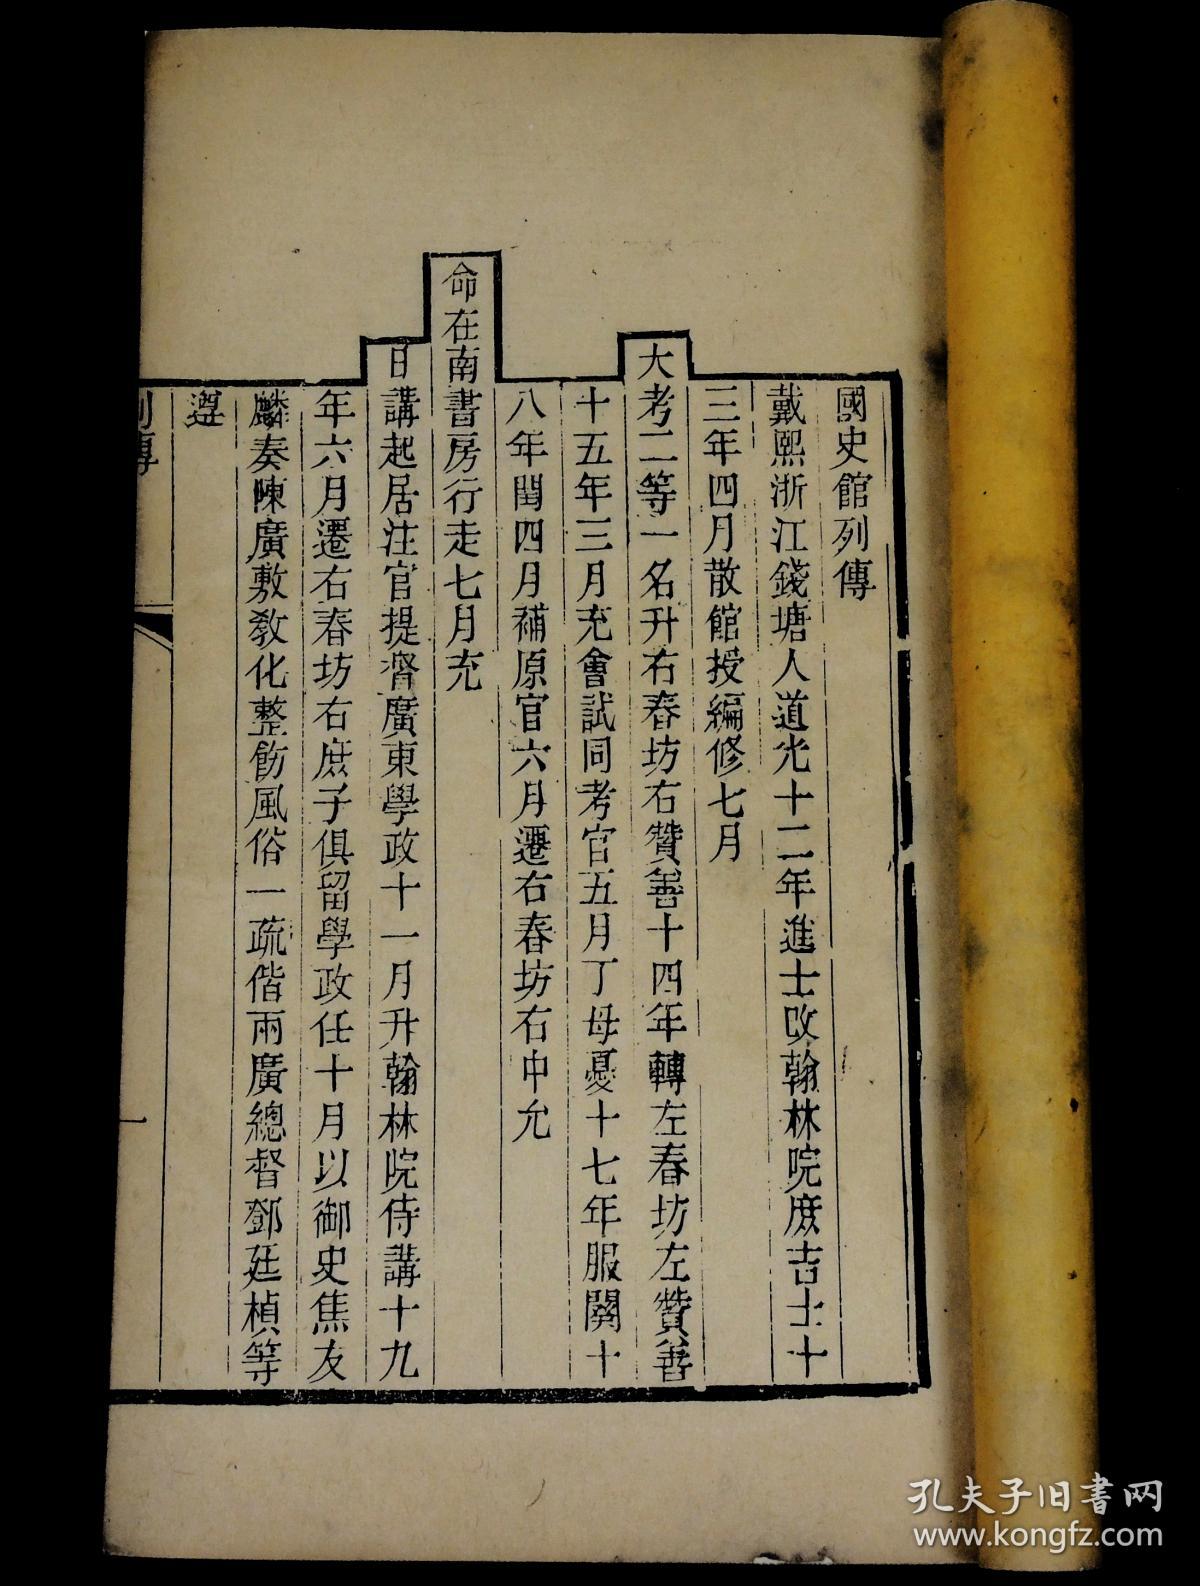 國史館列傳
戴熙浙江錢塘人道光十二年進士改翰林院庶吉士十
三年四月散館授編修七月
大考二等一名升右春坊右贊善十四年轉左春坊左贊善
十五年三月充會試同考官五月丁母憂十七年服闋十
八年閏四月補原官六月遷右春坊右中允
命在南書房行走七月充
日講起居注官提督廣東學政十一月升翰林院侍講十九
年六月遷右春坊右庶子俱留學政任十月以御史焦友
麟奏陳廣敷敎化整飭風俗一疏偕兩廣總督鄧廷楨等
遵
列傳
一
孔夫子旧书网
www.kongfz.com